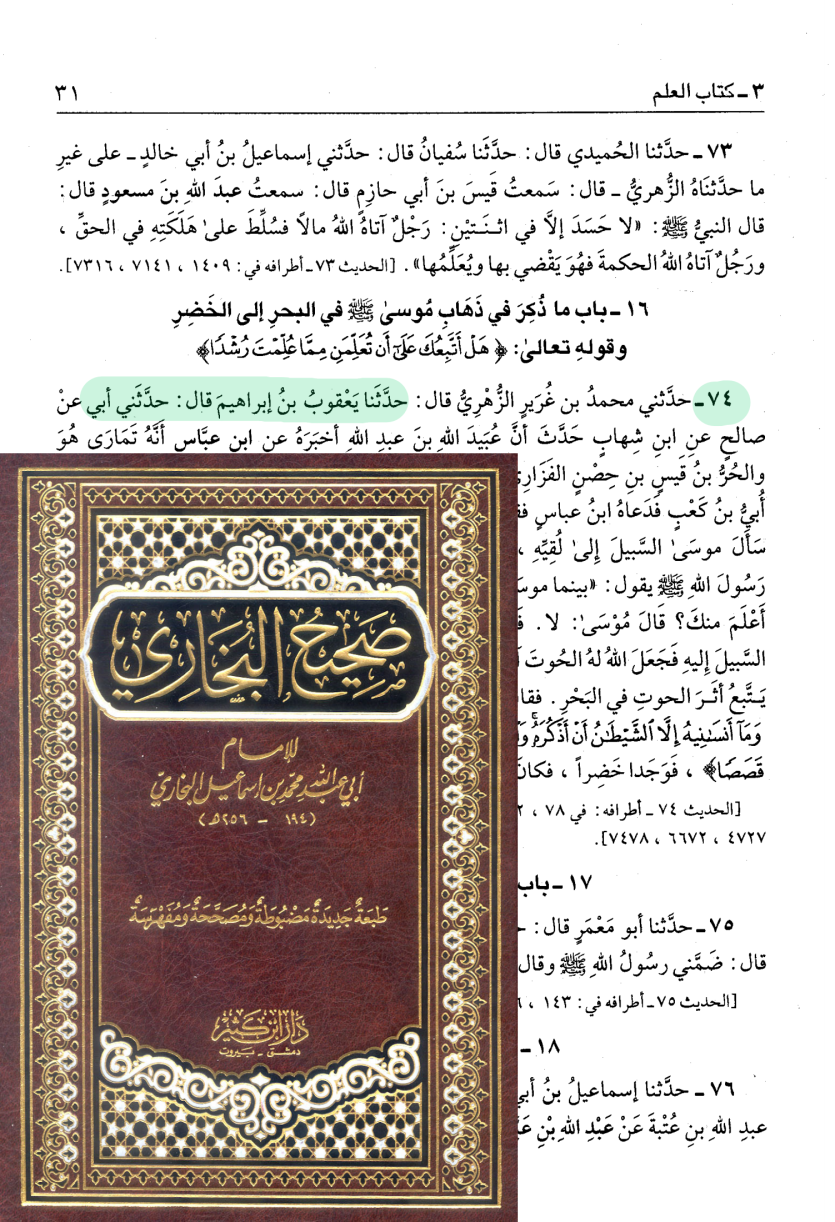 ٣ ـ كتاب العلم
٣١
٧٣ ـ حدَّثنا الحُميدي قال: حدَّثَنا سُفيانُ قال: حدَّثني إسماعيلُ بنُ أبي خالدٍ ـ على غيرِ
ما حدَّثنَاهُ الزُّهريُّ ـ قال: سَمعتُ قَيسَ بنَ أبي حازمٍ قال: سمعتُ عبدَ اللهِ بنَ مسعودٍ قال:
قال النبيُّ ﷺ: «لا حَسَدَ إلاَّ في اثنَتيْنِ: رَجُلٌ آتاهُ اللهُ مالاً فسُلِّطَ علىٰ هَلَكَتِهِ في الحقِّ،
ورَجُلٌ آتاهُ اللهُ الحكمةَ فهُوَ يَقْضي بها ويُعَلِّمُها». [الحديث ٧٣ ـ أطرافه في: ١٤٠٩، ٧١٤١، ٧٣١٦].
١٦ ـ باب ما ذُكِرَ في ذَهَابِ مُوسىٰ ﷺ في البحرِ إلى الخَضِرِ
وقولهِ تعالىٰ: ﴿هَلْ أَتَّبِعُكَ عَلَىٰٓ أَن تُعَلِّمَنِ مِمَّا عُلِّمْتَ رُشْدًا﴾
٧٤ ـ حدَّثني محمدُ بن غُرَيرٍ الزُّهْرِيُّ قال: حدَّثَنا يَعْقوبُ بنُ إبراهيمَ قال: حدَّثَني أبي عنْ
صالحٍ عنِ ابنِ شِهابٍ حَدَّثَ أنَّ عُبَيدَ اللهِ بنَ عبدِ اللهِ أخبَرَهُ عنِ ابنِ عبَّاس أنَّهُ تَمَارَى هُوَ
والحُرُّ بنُ قَيسِ بنِ حِصْنٍ الفَزَارِيُّ
أُبيُّ بنُ كَعْبٍ فَدَعاهُ ابنُ عباسٍ
سَأَلَ موسَىٰ السَّبيلَ إلىٰ لُقِيِّهِ،
رَسُولَ اللهِ ﷺ يقول: «بينما
أَعْلَمَ منكَ؟ قَالَ مُوْسَىٰ: لا.
السَّبيلَ إليهِ فَجَعَلَ اللهُ لهُ الحُوتَ
يَتَّبعُ أثَرَ الحوتِ في البَحْرِ.
وَمَآ أَنسَىٰنِيهُ إِلَّا ٱلشَّيْطَٰنُ أَنْ أَذْكُرَهُۥ
قَصَصًا﴾، فَوَجَدا خَضِراً،
[الحديث ٧٤ ـ أطرافه: في ٧٨،
٤٧٢٧، ٦٦٧٢، ٧٤٧٨].
١٧ ـ باب
٧٥ ـ حدَّثنا أبو مَعْمَرٍ قال:
قال: ضَمَّني رسولُ اللهِ ﷺ وقال
[الحديث ٧٥ ـ أطرافه في: ١٤٣،
١٨ ـ
٧٦ ـ حدَّثنا إسماعيلُ بنُ
عبدِ اللهِ بنِ عُتْبةَ عَنْ عَبْدِ اللهِ بْنِ
صَحِيحُ البُخَارِيِّ
للإمام
أبي عبد الله محمد بن إسماعيل البخاري
(١٩٤ - ٢٥٦هـ)
طَبعَةٌ جَدِيدَةٌ مَضْبُوطَةٌ وَمُصَحَّحَةٌ وَمُفَهْرَسَةٌ
دَارُ ابْنِ كَثِيرٍ
دمشق - بيروت